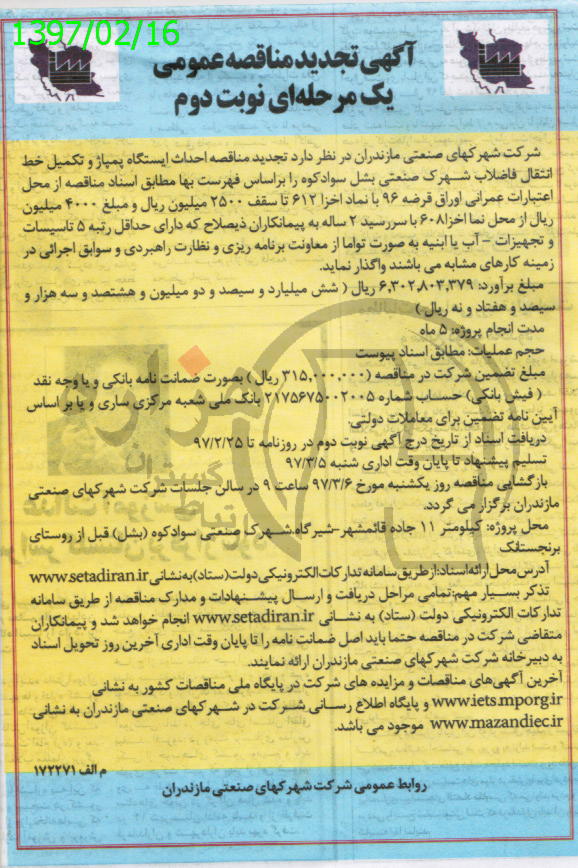 1397/02/16
آگهی تجدید مناقصه عمومی
یک مرحله‌ای نوبت دوم
شرکت شهرکهای صنعتی مازندران در نظر دارد تجدید مناقصه احداث ایستگاه پمپاژ و تکمیل خط
انتقال فاضلاب شهرک صنعتی بشل سوادکوه را براساس فهرست بها مطابق اسناد مناقصه از محل
اعتبارات عمرانی اوراق قرضه ۹۶ با نماد اخزا ۶۱۲ تا سقف ۲۵۰۰ میلیون ریال و مبلغ ۴۰۰۰ میلیون
ریال از محل نما اخزا۶۰۸ با سررسید ۲ ساله به پیمانکاران ذیصلاح که دارای حداقل رتبه ۵ تاسیسات
و تجهیزات – آب یا ابنیه به صورت تواما از معاونت برنامه ریزی و نظارت راهبردی و سوابق اجرائی در
زمینه کارهای مشابه می باشند واگذار نماید.
مبلغ برآورد: ۶,۳۰۲,۸۰۳,۳۷۹ ریال ( شش میلیارد و سیصد و دو میلیون و هشتصد و سه هزار و
سیصد و هفتاد و نه ریال )
مدت انجام پروژه: ۵ ماه
حجم عملیات: مطابق اسناد پیوست
مبلغ تضمین شرکت در مناقصه (۳۱۵,۰۰۰,۰۰۰ ریال ) بصورت ضمانت نامه بانکی و یا وجه نقد
( فیش بانکی) حساب شماره ۲۱۷۵۶۷۵۰۰۲۰۰۵ بانک ملی شعبه مرکزی ساری و یا بر اساس
آیین نامه تضمین برای معاملات دولتی:
دریافت اسناد از تاریخ درج آگهی نوبت دوم در روزنامه تا ۹۷/۲/۲۵
تسلیم پیشنهاد تا پایان وقت اداری شنبه ۹۷/۳/۵
بازگشایی مناقصه روز یکشنبه مورخ ۹۷/۳/۶ ساعت ۹ در سالن جلسات شرکت شهرکهای صنعتی
مازندران برگزار می گردد.
محل پروژه: کیلومتر ۱۱ جاده قائمشهر-شیرگاه،شهرک صنعتی سوادکوه (بشل) قبل از روستای
برنجستانک
آدرس محل ارائه اسناد: از طریق سامانه تدارکات الکترونیکی دولت (ستاد) به نشانی www.setadiran.ir
تذکر بسیار مهم: تمامی مراحل دریافت و ارسال پیشنهادات و مدارک مناقصه از طریق سامانه
تدارکات الکترونیکی دولت (ستاد) به نشانی www.setadiran.ir انجام خواهد شد و پیمانکاران
متقاضی شرکت در مناقصه حتما باید اصل ضمانت نامه را تا پایان وقت اداری آخرین روز تحویل اسناد
به دبیرخانه شرکت شهرکهای صنعتی مازندران ارائه نمایند.
آخرین آگهی‌های مناقصات و مزایده های شرکت در پایگاه ملی مناقصات کشور به نشانی
www.iets.mporg.ir و پایگاه اطلاع رسانی شرکت در شهرکهای صنعتی مازندران به نشانی
www.mazandiec.ir موجود می باشد.
م الف ۱۷۲۲۷۱
روابط عمومی شرکت شهرکهای صنعتی مازندران